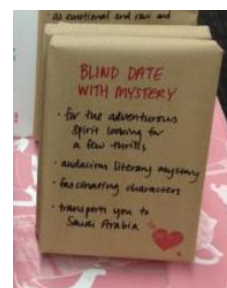 as emotional and raw and
BLIND DATE
WITH MYSTERY
· for the adventurous
spirit looking for
a few thrills
· audacious literary mystery
· fascinating characters
· transports you to
Saudi Arabia